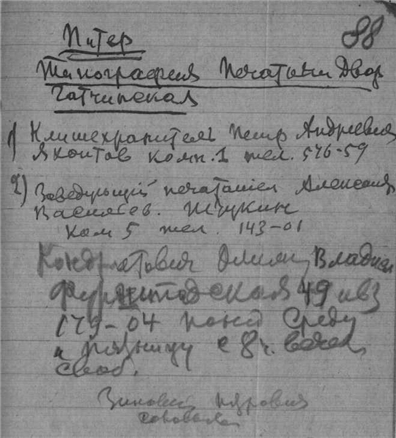 88
Питер
Типография Печатный Двор
Гатчинская
1) Клишехранитель Петр Андреевич
Яхонтов комн. 1 тел. 546-59
2) Заведующий печатанием Алексан
Васильев. Щукин
ком 5 тел. 143-01
Кондратович Олимп Владим
Фурштадская 49 кв 3
179-04 понед Среду
и пятницу с 8 ч. вечера
своб.
Зиновий